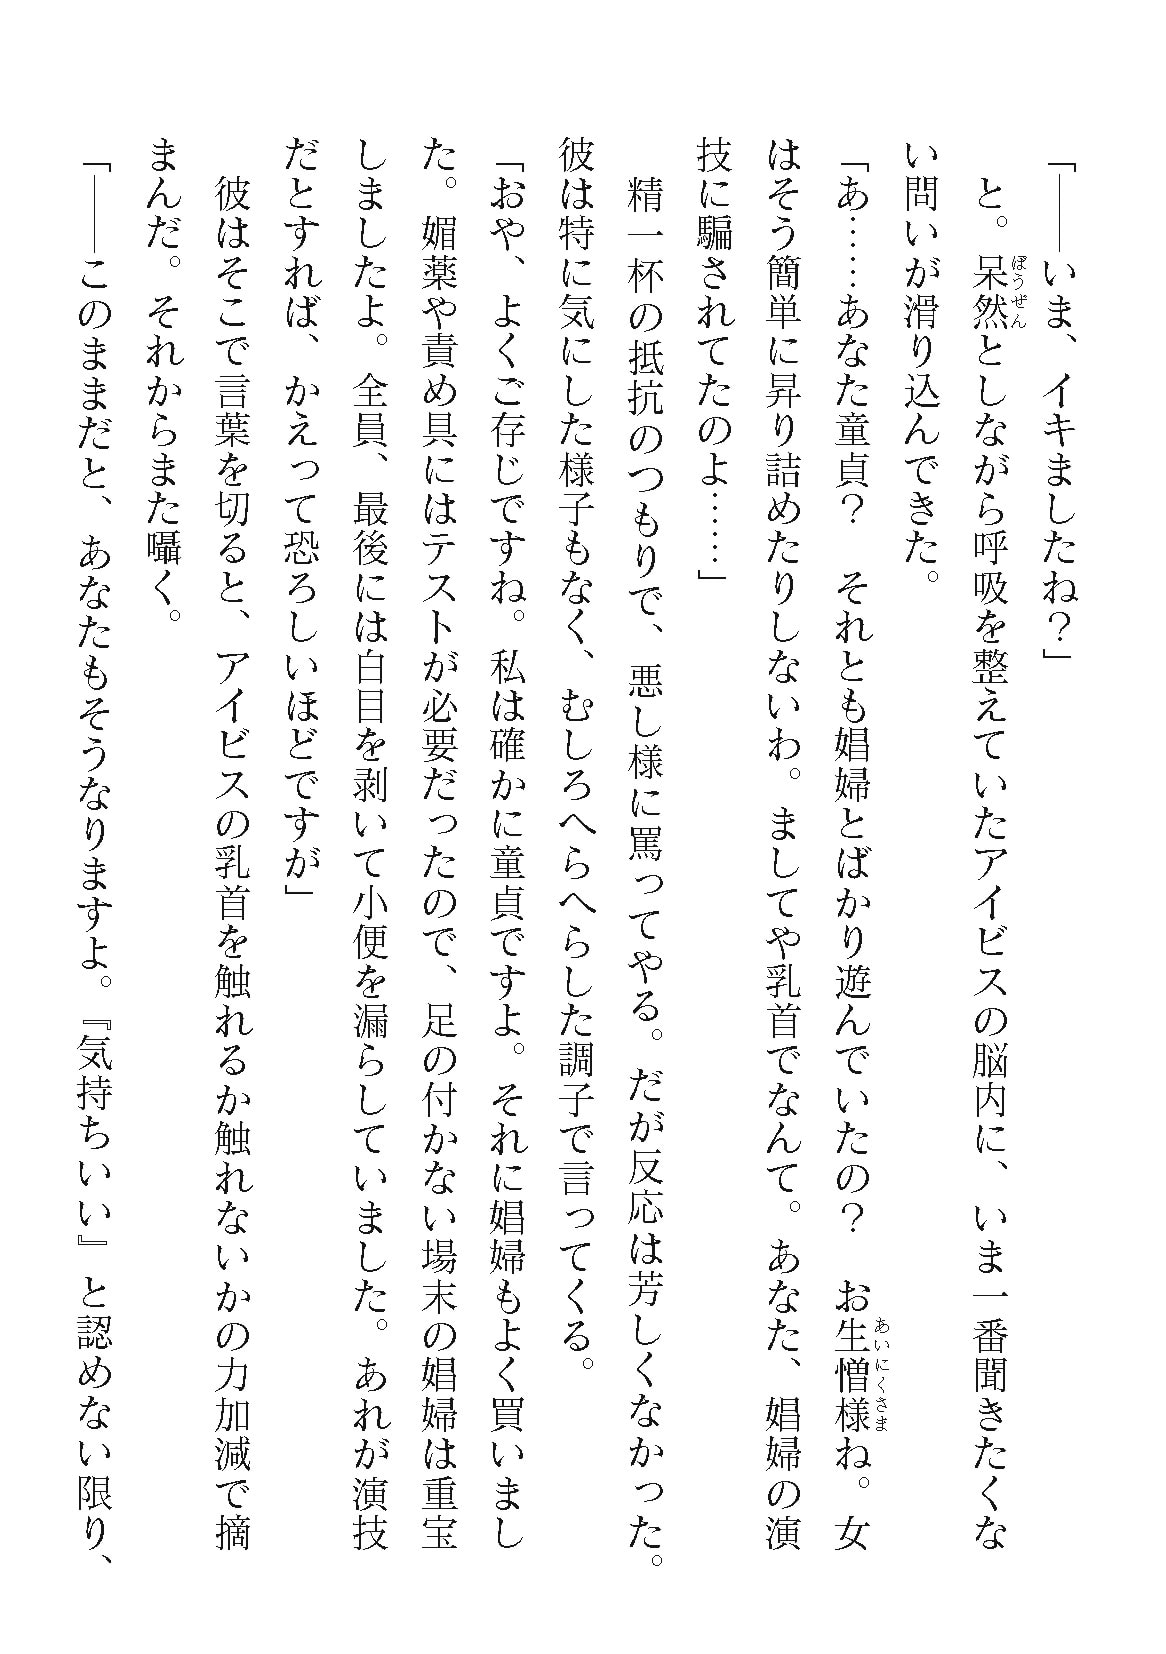 「――いま、イキましたね？」
　と。呆然としながら呼吸を整えていたアイビスの脳内に、いま一番聞きたくな
い問いが滑り込んできた。
「あ……あなた童貞？　それとも娼婦とばかり遊んでいたの？　お生憎様ね。女
はそう簡単に昇り詰めたりしないわ。ましてや乳首でなんて。あなた、娼婦の演
技に騙されてたのよ……」
　精一杯の抵抗のつもりで、悪し様に罵ってやる。だが反応は芳しくなかった。
彼は特に気にした様子もなく、むしろへらへらした調子で言ってくる。
「おや、よくご存じですね。私は確かに童貞ですよ。それに娼婦もよく買いまし
た。媚薬や責め具にはテストが必要だったので、足の付かない場末の娼婦は重宝
しましたよ。全員、最後には白目を剥いて小便を漏らしていました。あれが演技
だとすれば、かえって恐ろしいほどですが」
　彼はそこで言葉を切ると、アイビスの乳首を触れるか触れないかの力加減で摘
まんだ。それからまた囁く。
「――このままだと、あなたもそうなりますよ。『気持ちいい』と認めない限り、
ぼうぜん
あいにくさま